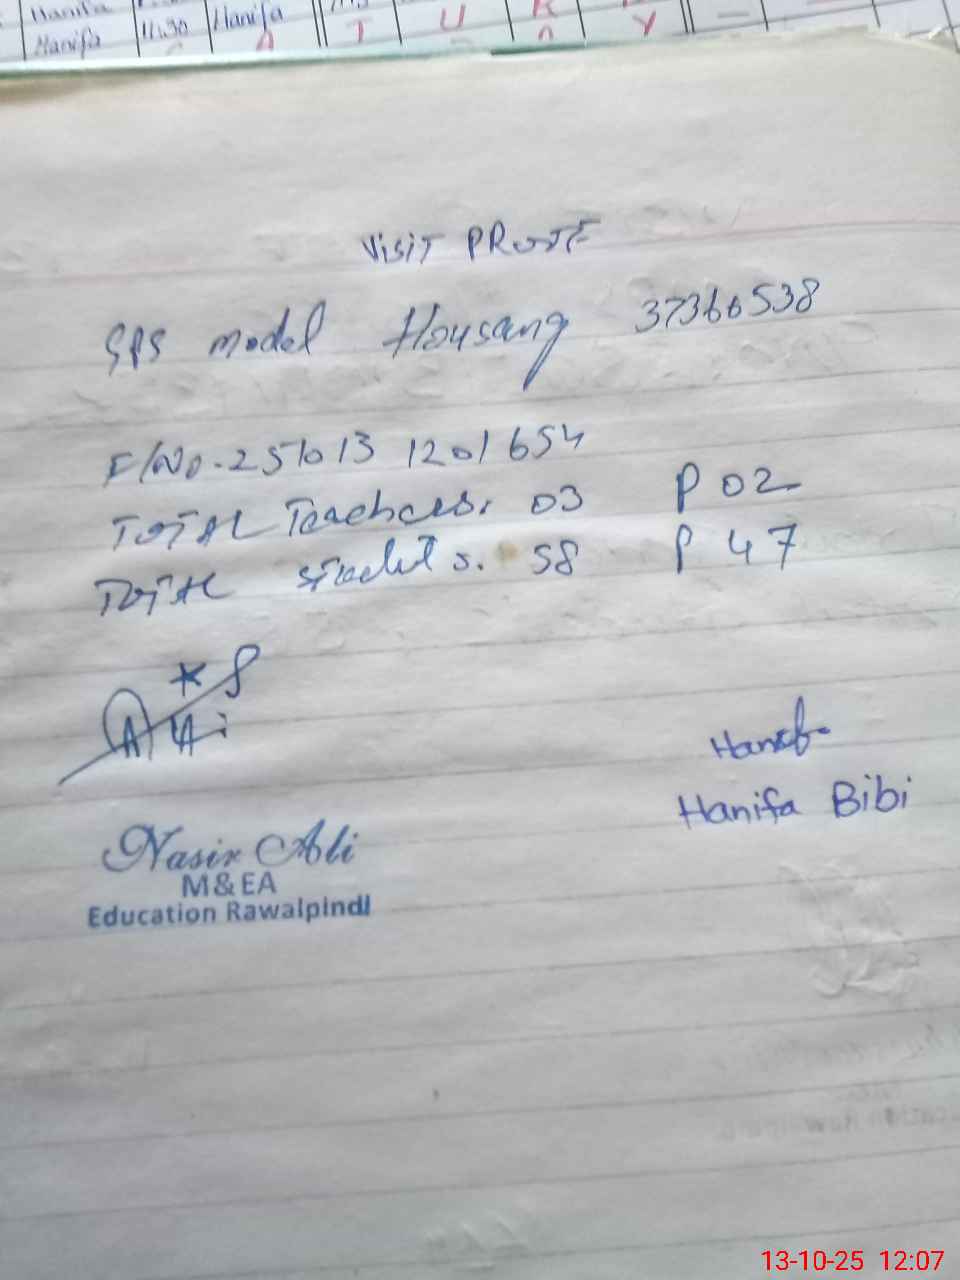 Hanifa
Hanifa 11:30 Hanifa A T U R Y
VISIT PROOF
GPS model Housang 37366538
F/No-251013 1201654
TOTAL Teachers. 03 P 02
TOTAL students. 58 P 47
Ali
Hanifa
Hanifa Bibi
Nasir Ali
M & EA
Education Rawalpindi
13-10-25 12:07